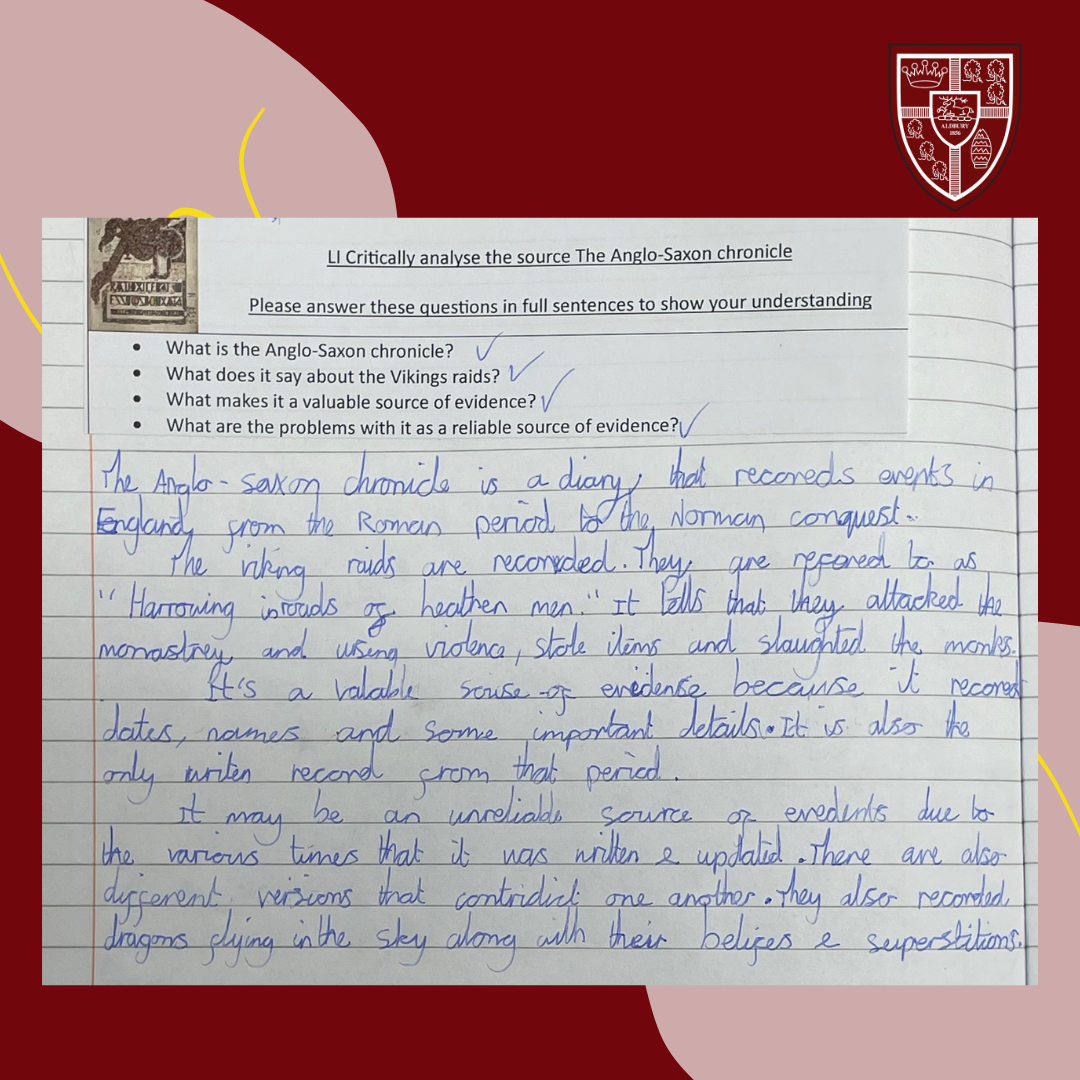 ALDBURY
1856
LI Critically analyse the source The Anglo-Saxon chronicle
Please answer these questions in full sentences to show your understanding
• What is the Anglo-Saxon chronicle? ✓
• What does it say about the Vikings raids? ✓
• What makes it a valuable source of evidence? ✓
• What are the problems with it as a reliable source of evidence? ✓
The Anglo-saxon chronicle is a diary, that recoreds events in
England, from the Roman period to the Norman conquest.
The viking raids are recoreded. They are refered to as
"Harrowing inroads of heathen men." It tells that they attacked the
monastrey and using violence, stole items and slaughted the monks.
It's a valable sourse of evidense because it recored
dates, names and some important details. It is also the
only writen record from that period.
It may be an unreliable source of evedents due to
the various times that it was written & updated. There are also
different versions that contridict one another. They also recorded
dragons flying in the sky along with their belifes & superstitions.